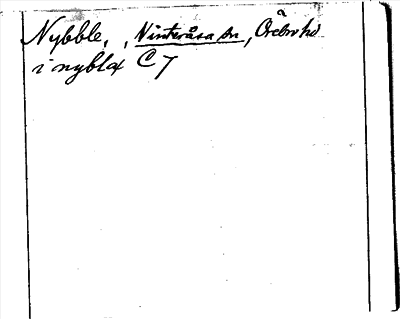 Nybble, , Vinteråsa sn, Örebro hd
i nyblæ C 7